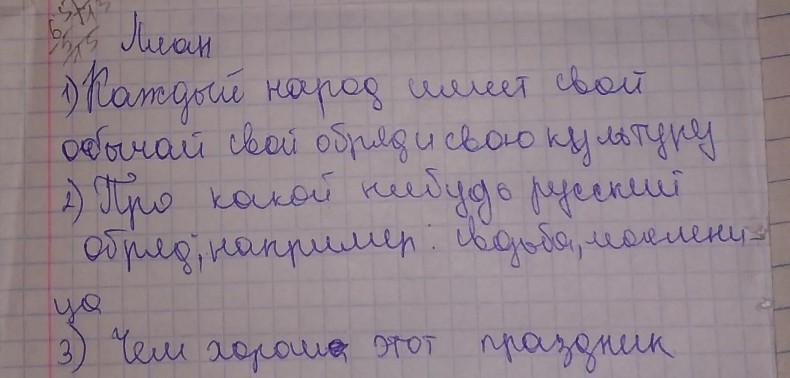 План
1) Каждый народ имеет свой
обычай свой обряд и свою культуру
2) Про какой нибудь русский
обряд, например: свадьба, маслени-
ца
3) Чем хорош этот праздник